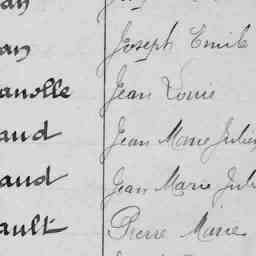 an Joseph Emile
anolle Jean Louis
aud Jean Marie Julien
aud Jean Marie Juli
ault Pierre Marie